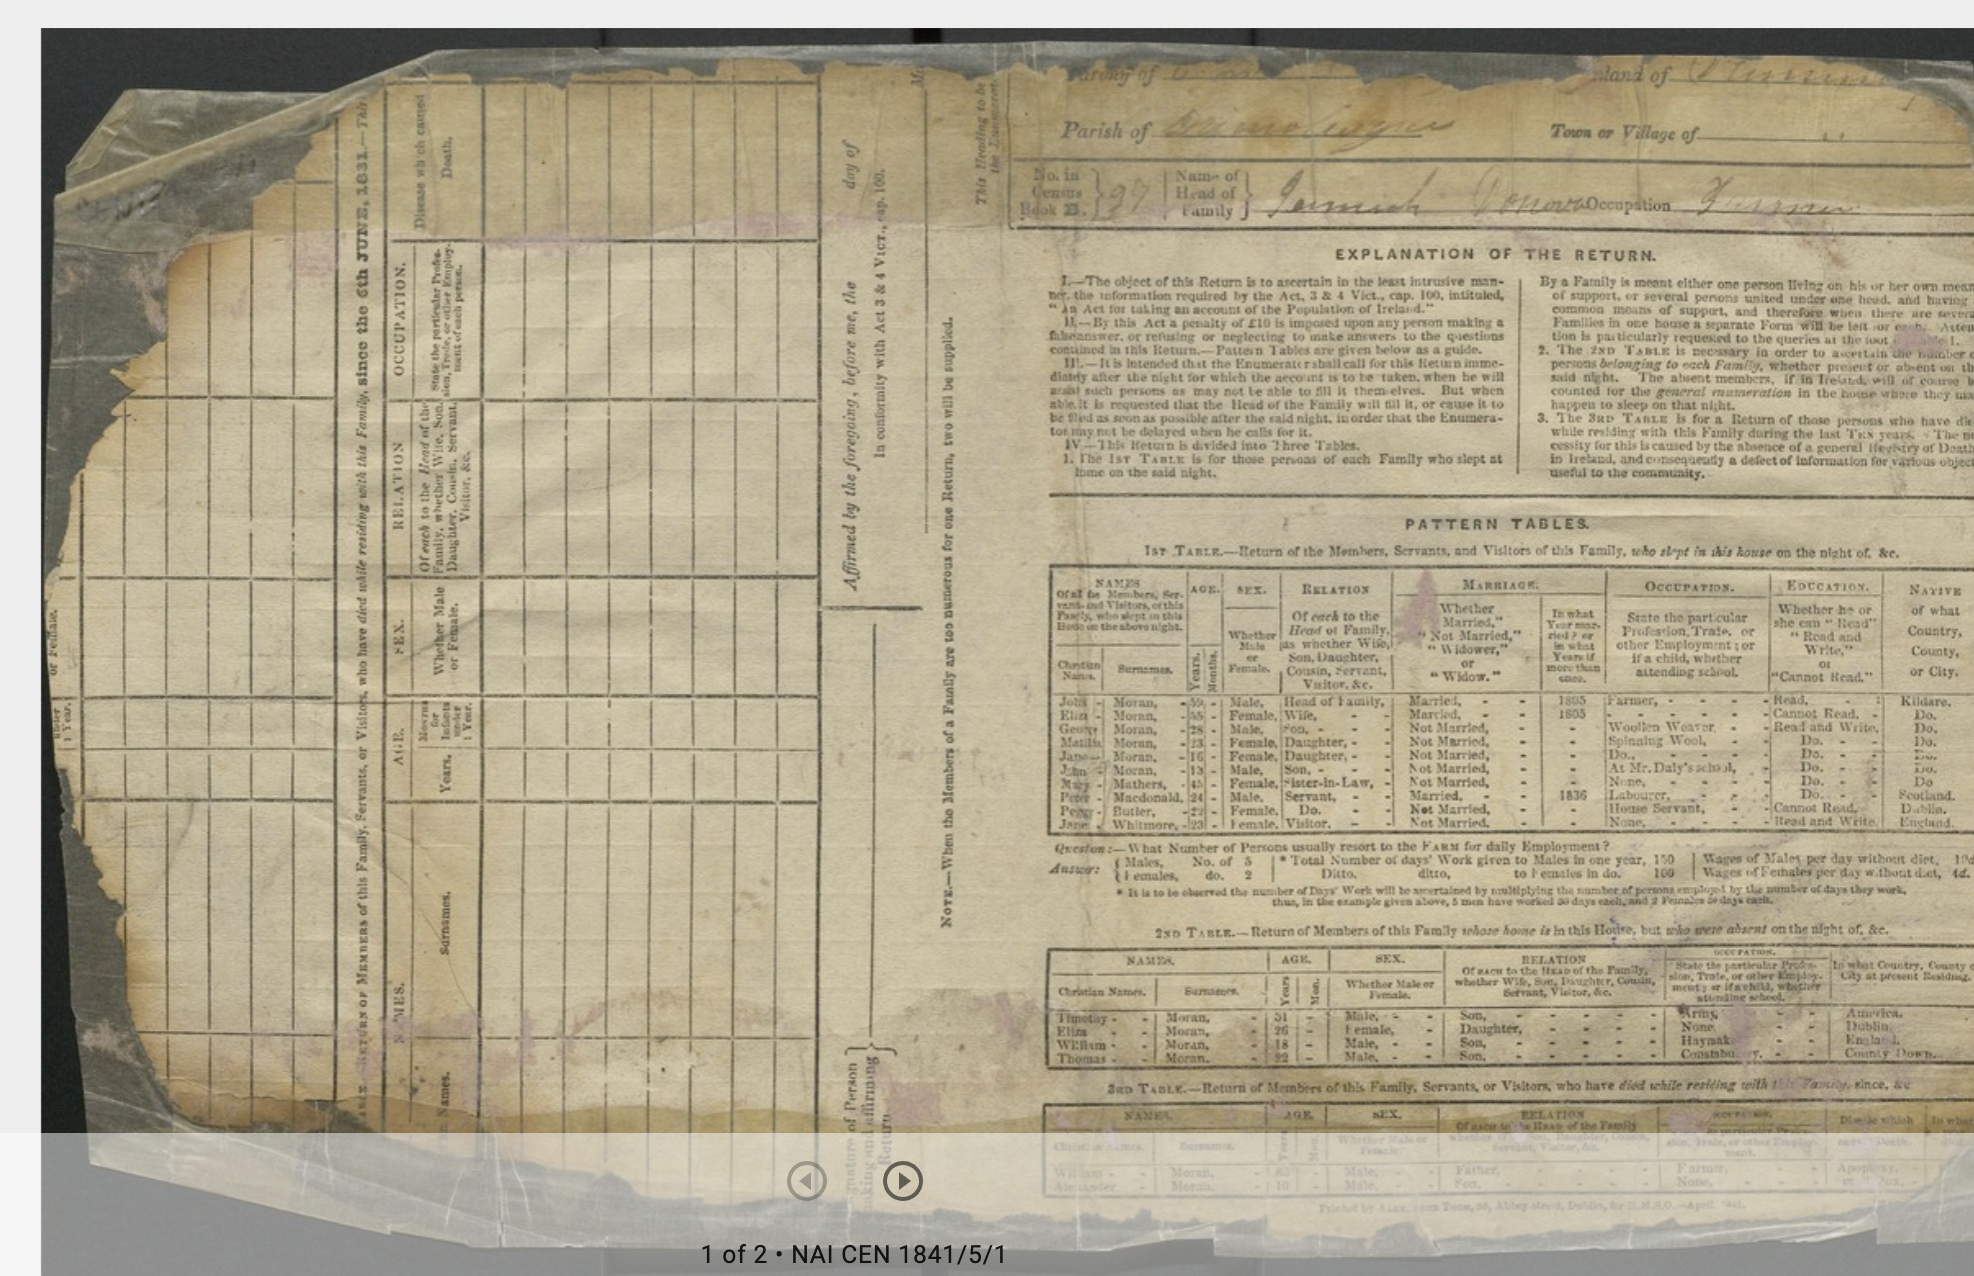 Parish of
Town or Village of
No. in Census Book B. } 97
Name of Head of Family }
Occupation Farmer
This Heading to be
the Enumerator
EXPLANATION OF THE RETURN.
I.—The object of this Return is to ascertain in the least intrusive man-
ner, the information required by the Act, 3 & 4 Vict., cap. 100, intituled,
"An Act for taking an account of the Population of Ireland."
II.—By this Act a penalty of £10 is imposed upon any person making a
false answer, or refusing or neglecting to make answers to the questions
contained in this Return.—Pattern Tables are given below as a guide.
III.—It is intended that the Enumerator shall call for this Return imme-
diately after the night for which the account is to be taken, when he will
assist such persons as may not be able to fill it themselves. But when
able, it is requested that the Head of the Family will fill it, or cause it to
be filled as soon as possible after the said night, in order that the Enumera-
tor may not be delayed when he calls for it.
IV.—This Return is divided into Three Tables.
1. The 1ST TABLE is for those persons of each Family who slept at
home on the said night.
By a Family is meant either one person living on his or her own mean
of support, or several persons united under one head, and having
common means of support, and therefore when there are severa
Families in one house a separate Form will be left for each. Atten
tion is particularly requested to the queries at the foot
2. The 2ND TABLE is necessary in order to ascertain the number o
persons belonging to each Family, whether present or absent on th
said night. The absent members, if in Ireland, will of course b
counted for the general enumeration in the house where they ma
happen to sleep on that night.
3. The 3RD TABLE is for a Return of those persons who have die
while residing with this Family during the last TEN years. The ne
cessity for this is caused by the absence of a general Registry of Death
in Ireland, and consequently a defect of information for various object
useful to the community.
PATTERN TABLES.
1ST TABLE.—Return of the Members, Servants, and Visitors of this Family, who slept in this house on the night of, &c.
NAMES Of all the Members, Servants and Visitors, of this Family, who slept in this House on the above night. AGE. SEX. RELATION MARRIAGE. OCCUPATION. EDUCATION. NATIVE
Christian Names. Surnames. Years. Months. Whether Male or Female. Of each to the Head of Family, as whether Wife, Son, Daughter, Cousin, Servant, Visitor, &c. Whether "Married," "Not Married," "Widower," or "Widow." In what Year married? or in what Years if more than once. State the particular Profession, Trade, or other Employment; or if a child, whether attending school. Whether he or she can "Read" "Read and Write," or "Cannot Read." of what Country, County, or City.
John - Moran, - 59 - Male, Head of Family, Married, - - 1805 Farmer, - - - Read, - Kildare.
Eliza - Moran, - 55 - Female, Wife, - - Married, - - 1805 - - - - Cannot Read, - Do.
George Moran, - 28 - Male, Son, - - Not Married, - - Woollen Weaver, - Read and Write, Do.
Matilda Moran, - 23 - Female, Daughter, - Not Married, - - Spinning Wool, - Do. - Do.
Jane - Moran, - 16 - Female, Daughter, - Not Married, - - Do., - - - Do. - Do.
John - Moran, - 13 - Male, Son, - - Not Married, - - At Mr. Daly's school, - Do. - Do.
Mary - Mathers, - 45 - Female, Sister-in-Law, - Not Married, - - None, - - - Do. - Do
Peter - Macdonald, 24 - Male, Servant, - Married, - - 1836 Labourer, - - - Do. - Scotland.
Peggy - Butler, - 22 - Female, Do. - Not Married, - - House Servant, - - Cannot Read, Dublin.
Jane - Whitmore, - 23 - Female, Visitor. - - Not Married, - - None, - - - Read and Write. England.
Question:—What Number of Persons usually resort to the FARM for daily Employment?
Answer: { Males, No. of 5 | * Total Number of days' Work given to Males in one year, 150 | Wages of Males per day without diet, 10d
{ Females, do. 2 | Ditto, ditto, to Females in do. 100 | Wages of Females per day without diet, 4d.
* It is to be observed the number of Days' Work will be ascertained by multiplying the number of persons employed by the number of days they work,
thus, in the example given above, 5 men have worked 30 days each, and 2 Females 50 days each.
2ND TABLE.—Return of Members of this Family whose home is in this House, but who were absent on the night of, &c.
NAMES. AGE. SEX. RELATION OCCUPATION.
Christian Names. Surnames. Years Mon. Whether Male or Female. Of EACH to the HEAD of the Family, whether Wife, Son, Daughter, Cousin, Servant, Visitor, &c. State the particular Profession, Trade, or other Employment; or if a child, whether attending school. In what Country, County o City at present Residing.
Timothy - - Moran, - 31 - Male, - - Son, - - - Army, - - America.
Eliza - - Moran, - 26 - Female, - Daughter, - - - None, - - Dublin.
William - - Moran, - 18 - Male, - - Son, - - - England.
Thomas - - Moran. - 22 - Male, - - Son, - - - - - County Down.
3RD TABLE.—Return of Members of this Family, Servants, or Visitors, who have died while residing with this Family, since, &c
NAMES. AGE. SEX. RELATION
Of each to the Head of the Family
Moran, Male, Father, Farmer, Apoplexy,
Moran. Male, Son. None,
since the 6th JUNE, 1831.
RETURN OF MEMBERS of this Family, Servants, or Visitors, who have died while residing with this Family,
Disease which caused Death.
OCCUPATION. State the particular Profession, Trade, or other Employment of each person.
RELATION Of each to the Head of the Family, whether Wife, Son, Daughter, Cousin, Servant, Visitor, &c.
SEX. Whether Male or Female.
AGE. Years. Months for Infants under 1 Year.
Surnames.
Names.
or Female.
under 1 Year.
Affirmed by the foregoing, before me, the day of
In conformity with Act 3 & 4 VICT., cap. 100.
NOTE.—When the Members of a Family are too numerous for one Return, two will be supplied.
of Person
making and affirming
Return
1 of 2 • NAI CEN 1841/5/1